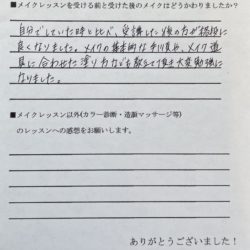 ■メイクレッスンを受ける前と受けた後のメイクはどうかわりましたか？
自分でしていた時と比べ、受講した後の方が格段に
良くなりました。メイクの基本的な手順や、メイク道
具に合わせた塗り方なども教えて頂き大変勉強に
なりました。
■メイクレッスン以外(カラー診断・造顔マッサージ等)
のレッスンへの感想をお願いします。
ありがとうございました！